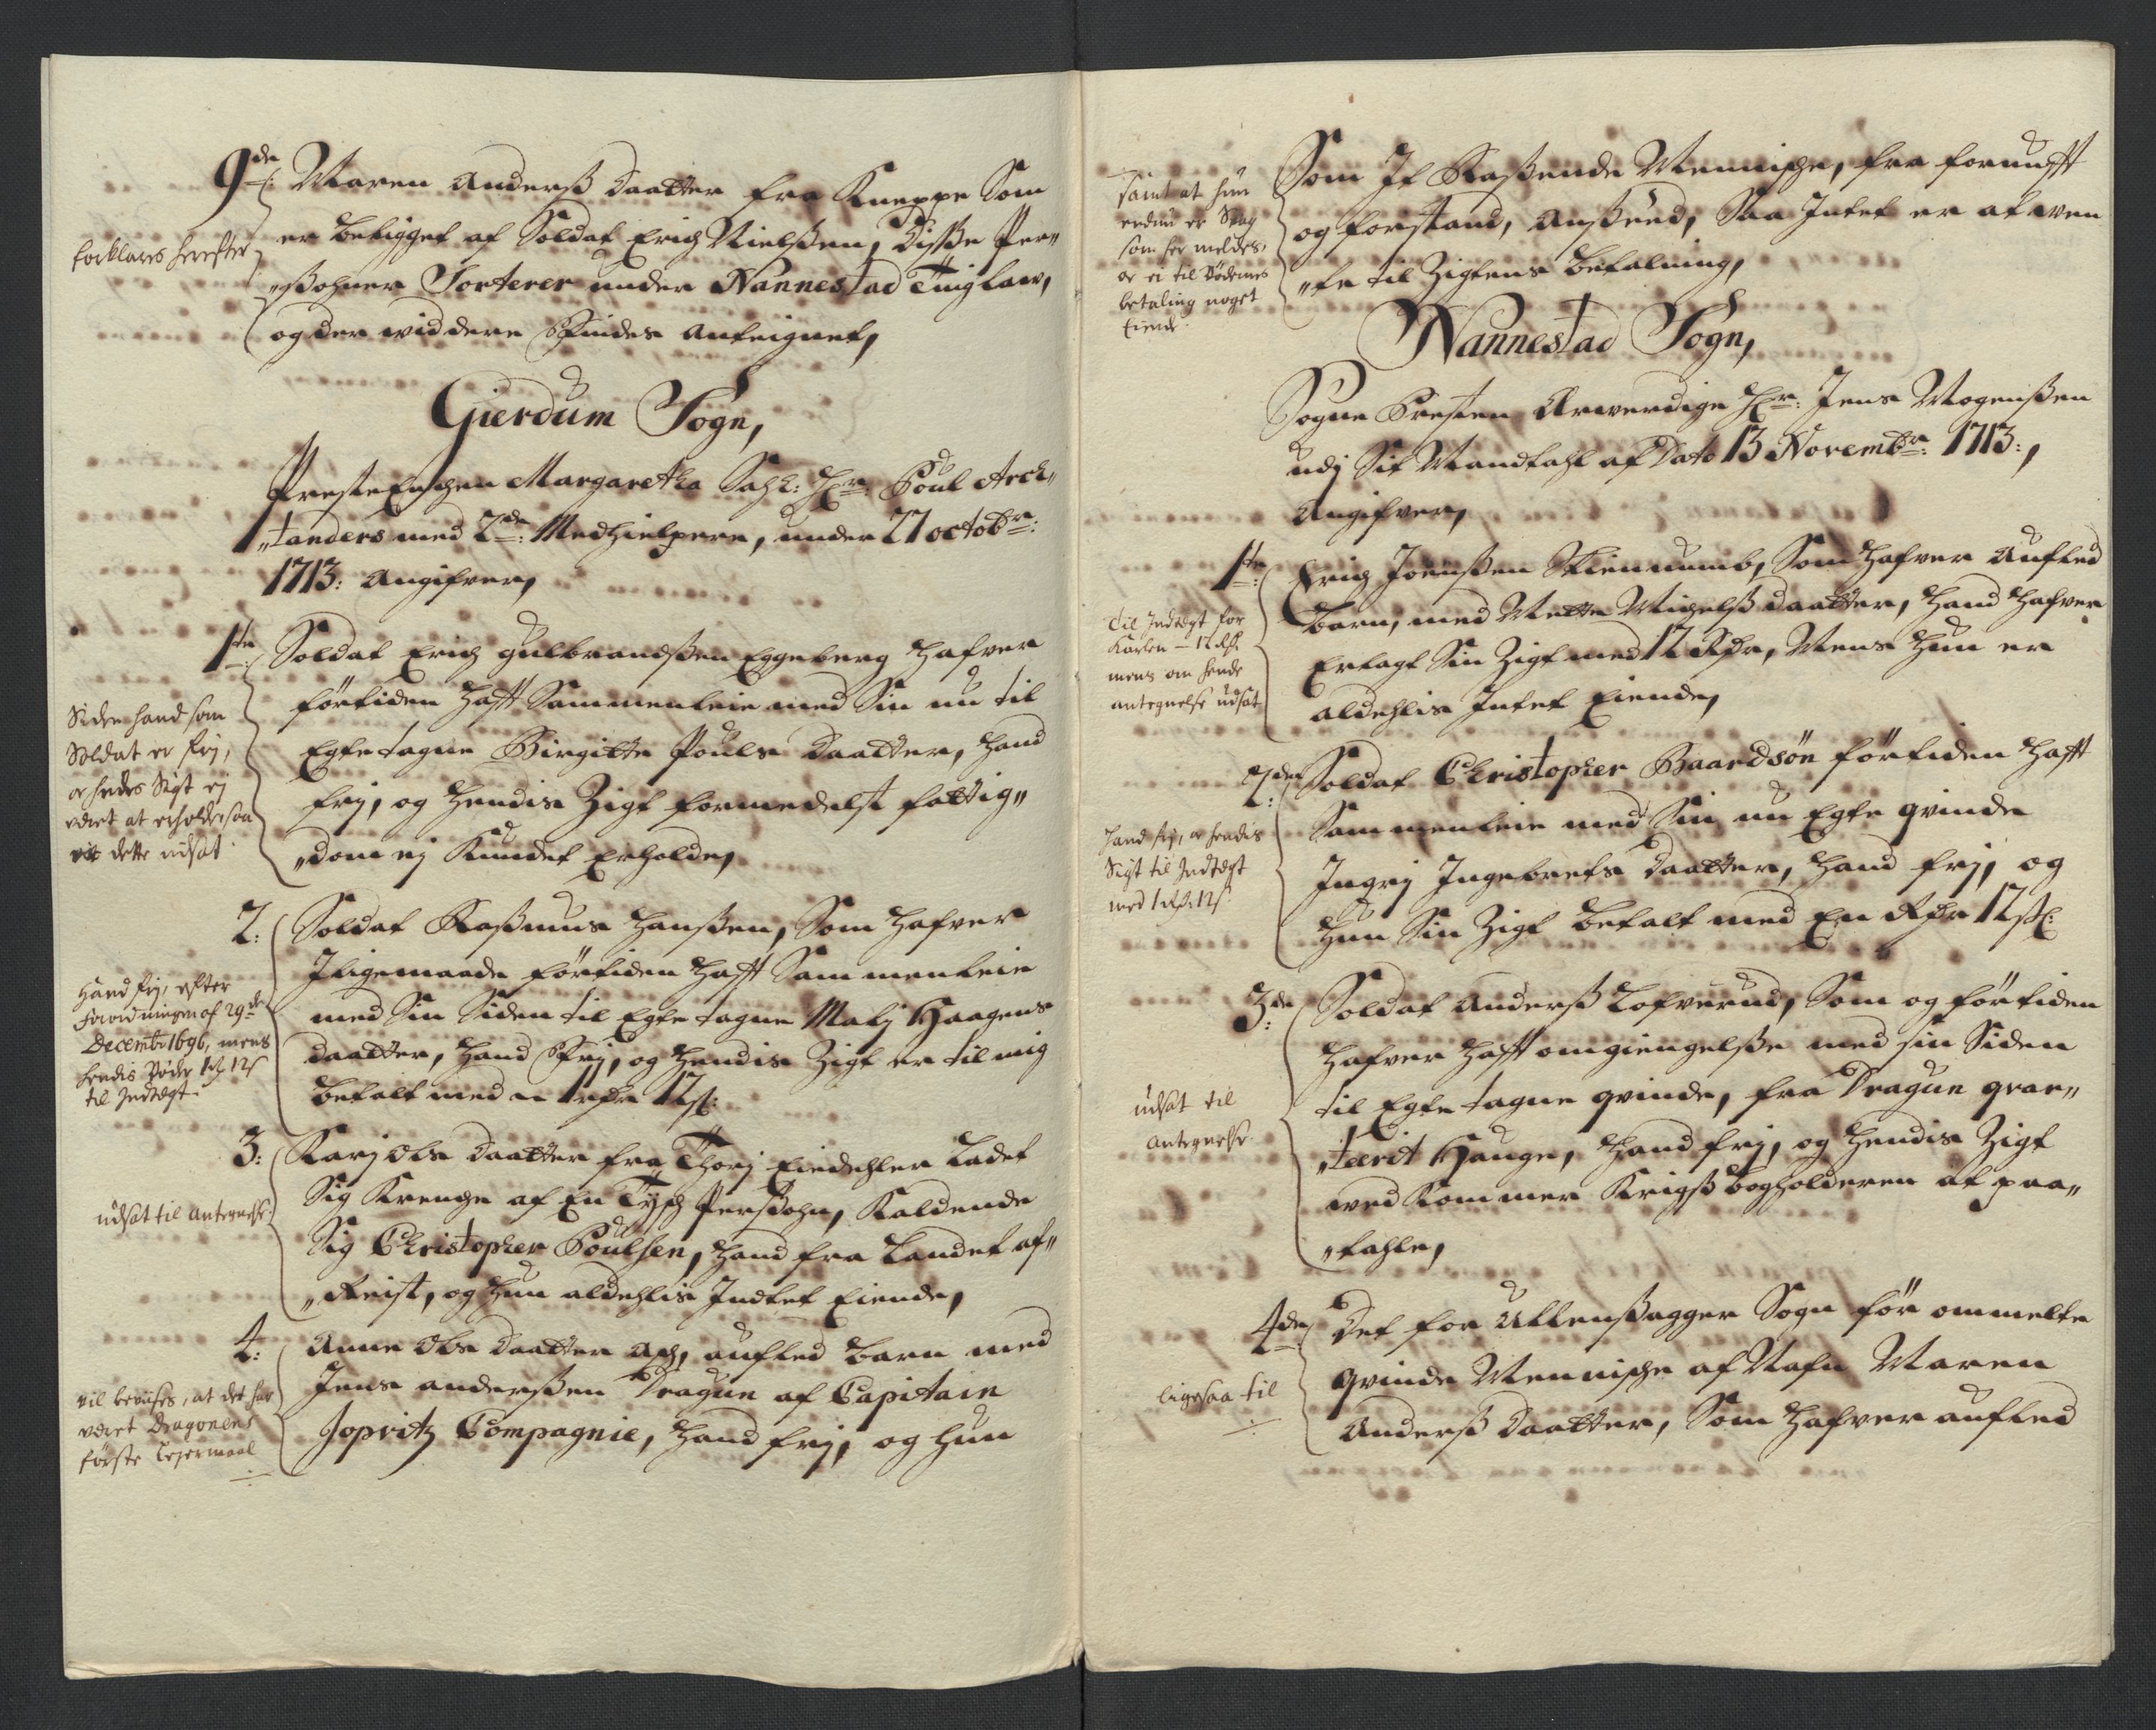 9de: Maren Anderß Daatter fra Kneppe Som
er beligget af Soldat Erich Nielßen, Disße Per„
„ßohner Sorterer under Nannestad Tinglau,
og der widdere Findes anteignet,
forklares herefter
Gierdum Sogn,
Præste Enchen Margaretha Sahl: Hr: Poul Arch„
„tanders med 2de: Medhielpere, under 27 octobr:
1713: angifver,
1te: Soldat Erich Gulbrandßen Eggeberg hafver
førtiden hafft Sammenleie med Sin nu til
Egte tagne Birgitte Pouls Daatter, hand
frj, og hendis Zigt formedelst fattig„
„dom ej Kundet Erholde,
Siden hand som
Soldat er frj,
oc hendes Sigt ej
været at erholde saa
dette udsat
2: Soldat Raßmus Hanßen, Som hafver
Jligemaade førtiden hafft Sammenleie
med Sin Siden til Egte tagne Malj Haagens
daatter, hand Frj, og hendis Zigt er til mig
betalt med 1 rdr 12ß:
Hand frj, efter
Forordningen af 29de
Decembr 1696, mens
hendis Bøder 1 rd 12ß
til Indtægt
3: Karj Ols Daatter fra Thorj Eiedehler Ladet
Sig Krenche af En Tydsch Persßohn, Kaldende
Sig Christopher Poulsen, hand fra Landet af„
„Reist, og hun aldehlis Indtet Eiende,
udsat til Antegnelse
4: Anne Ols Daatter Ach, aufled Barn med
Jens anderßen Dragun af Capitain
Jopritz Compagnie, hand frj, og hun
vil bevises, at det har
været Dragonens
første Lejermaal
Som Jt Raßende Menniche, fra fornufft
og forstand, Anßeed, Saa Jntet er at ven
„te til Zigtens betalning,
samt at hun
endnu er Svag
som her meldes,
oc ei til Bødernes
betaling noget
Eiende
Nannestad Sogn,
Sogne Presten Ærwerdige Hr: Jens Mogenßen
udj Sit Mandtahl af Dato 13 Novembr: 1713:,
Angifver,
1te: Erich Joenßen Skiennumb, Som hafver Aufled
Barn, med Mette Michelß daatter, hand hafver
Erlagt Sin Zigt med 12 Rdr, Mens hun er
aldehlis Jntet Eiende,
Til Indtægt for
Karlen — 12 rdr
mens om hende
antegnelse udsat
2de: Soldat Christopher Baardsøn førtiden hafft
Sammenleie med Sin nu Egte qvinde
Jngrj Jngebrets Daatter, hand frj, og
hun Sin Zigt betalt med En Rdr 12ß:
hand frj, oc hendis
Sigt til Indtægt
med 1 Rd. 12ß
3de: Soldat Anderß Lofverud, Som og førtiden
hafver hafft omgiengelsße med sin Siden
til Egte tagne qvinde, fra Dragun qvar„
„teerit Hauge, hand frj, og hendis Zigt
wed Kommer Krigsß bogholderen at paa„
„tahle,
udsat til
antegnelse
4de: Det for Ullenßagger Sogn før ommelte
qvinde Menniche af Nafn Maren
Anderß Daatter, Som hafver aufled
ligesaa til